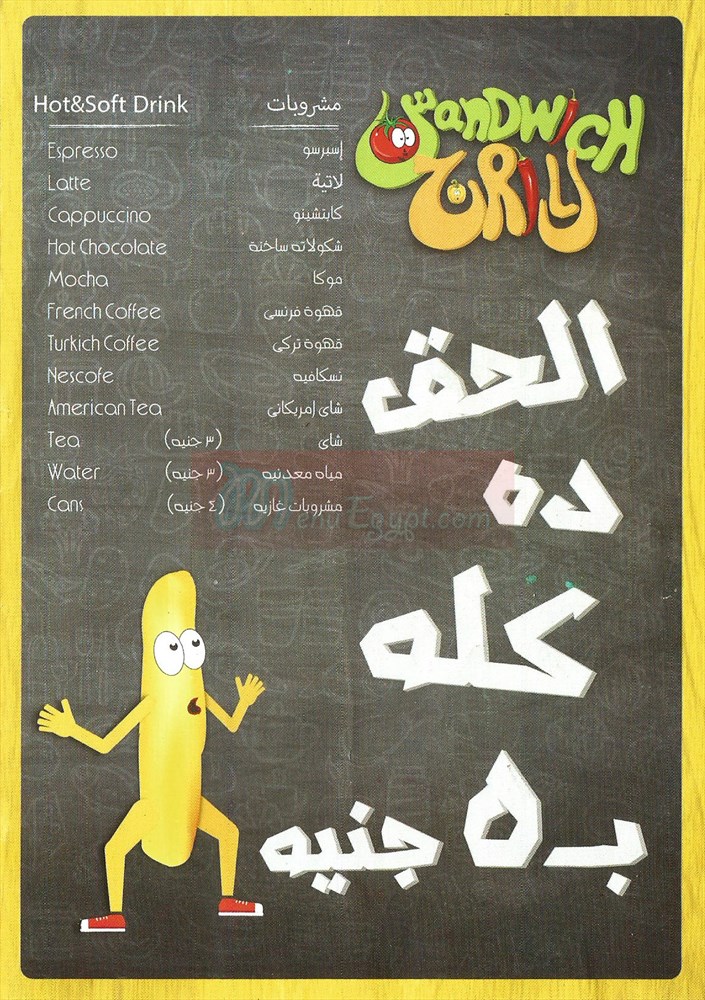 Sandwich
Grill
Hot&Soft Drink مشروبات
Espresso إسبرسو
Latte لاتية
Cappuccino كابتشينو
Hot Chocolate شكولاته ساخنه
Mocha موكا
French Coffee قهوة فرنسى
Turkich Coffee قهوة تركى
Nescofe نسكافيه
American Tea شاى إمريكانى
Tea (٣ جنيه) شاى
Water (٣ جنيه) مياه معدنيه
Cans (٤ جنيه) مشروبات غازيه
الحق
ده
كله
بـ ٥ جنيه
MenuEgypt.com